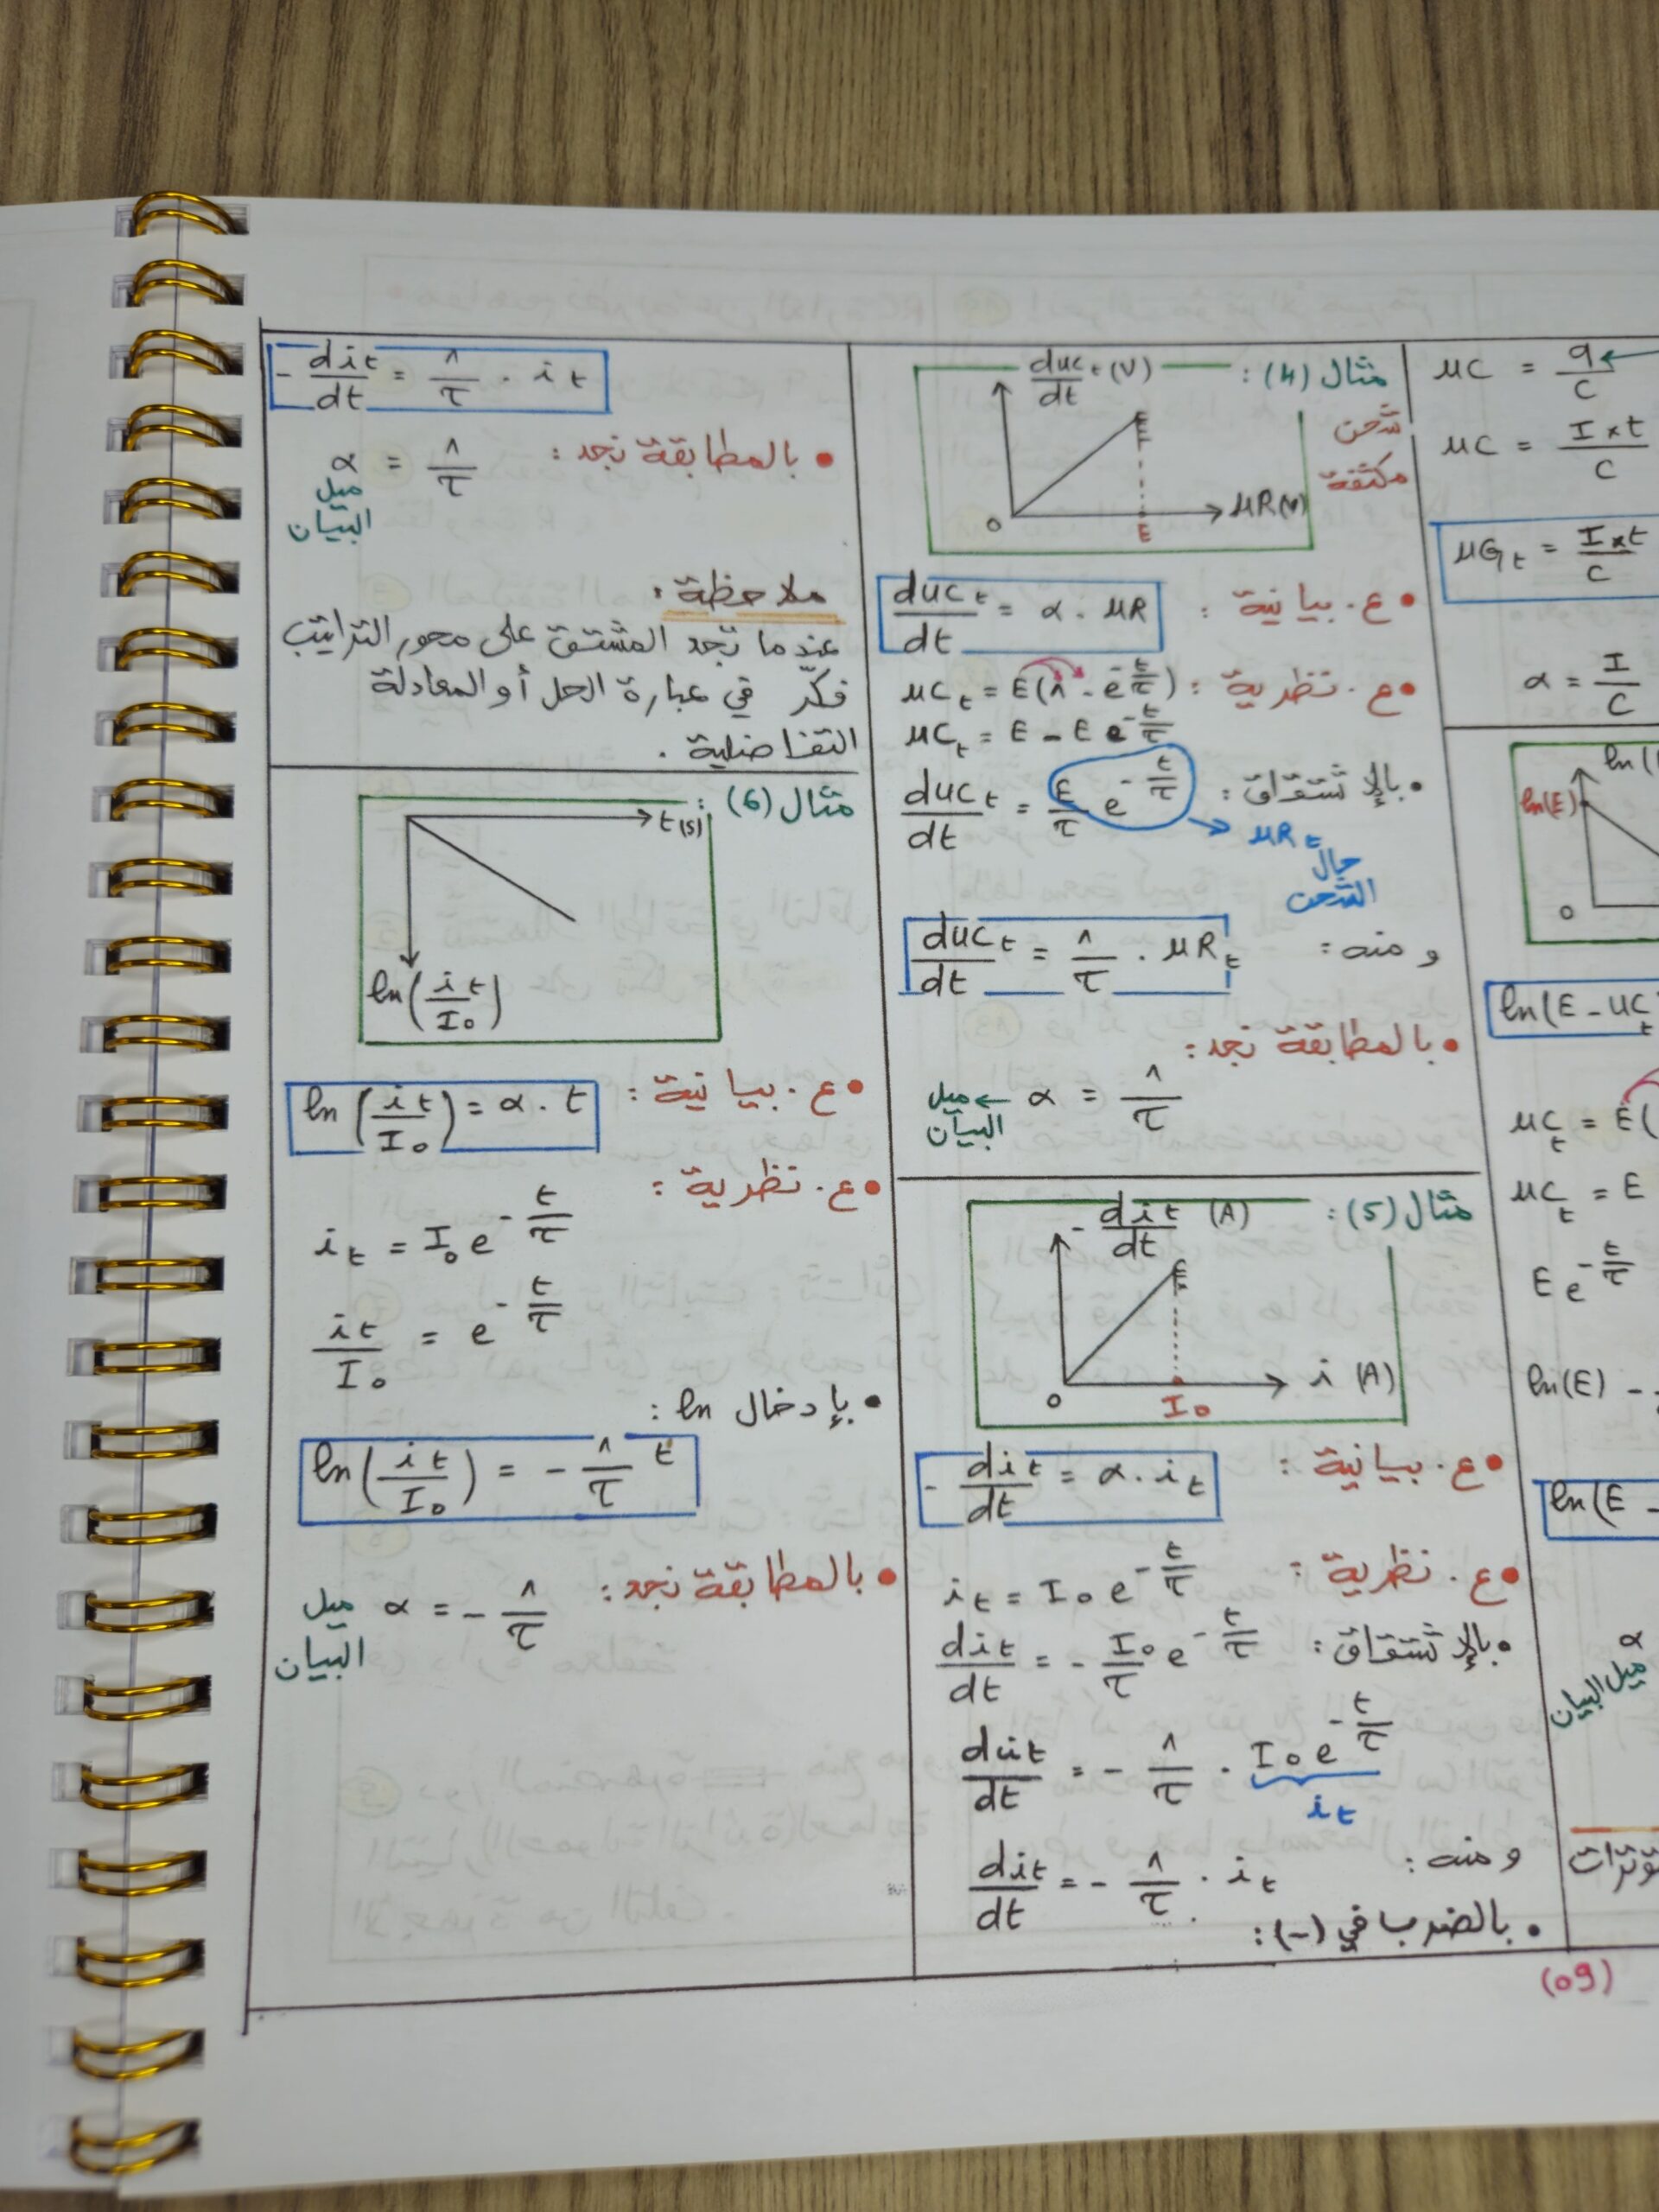 uC = q/C
uC = I×t/C
uG_t = I×t/C
α = I/C
ln(E)
0
ln(E - uC_t
uC_t = E(
uC_t = E
E e^(-t/τ)
ln(E) -
ln(E -
α
ميل البيان
مثال (4) :
شحن
مكثفة
duc_t/dt (V)
0
E
uR(V)
• ع. بيانية : duc_t/dt = α . uR
• ع. نظرية : uC_t = E(1 - e^(-t/τ))
uC_t = E - E e^(-t/τ)
• بالإشتقاق : duc_t/dt = E/τ e^(-t/τ)
uR_t
حال
الشحن
ومنه : duc_t/dt = 1/τ . uR_t
• بالمطابقة نجد :
α = 1/τ
ميل
البيان
مثال (5) :
- di_t/dt (A)
0
I₀
i (A)
• ع. بيانية : - di_t/dt = α . i_t
• ع. نظرية : i_t = I₀ e^(-t/τ)
• بالإشتقاق : di_t/dt = - I₀/τ e^(-t/τ)
di_t/dt = - 1/τ . I₀ e^(-t/τ)
i_t
ومنه : di_t/dt = - 1/τ . i_t
• بالضرب في (-) :
- di_t/dt = 1/τ . i_t
• بالمطابقة نجد : α = 1/τ
ميل
البيان
ملاحظة :
عندما تجد المشتق على محور التراتيب
فكّر في عبارة الحل أو المعادلة
التفاضلية .
مثال (6) :
t(s)
ln(i_t/I₀)
• ع. بيانية : ln(i_t/I₀) = α . t
• ع. نظرية :
i_t = I₀ e^(-t/τ)
i_t/I₀ = e^(-t/τ)
• بإدخال ln :
ln(i_t/I₀) = - 1/τ t
• بالمطابقة نجد : α = - 1/τ
ميل
البيان
(09)